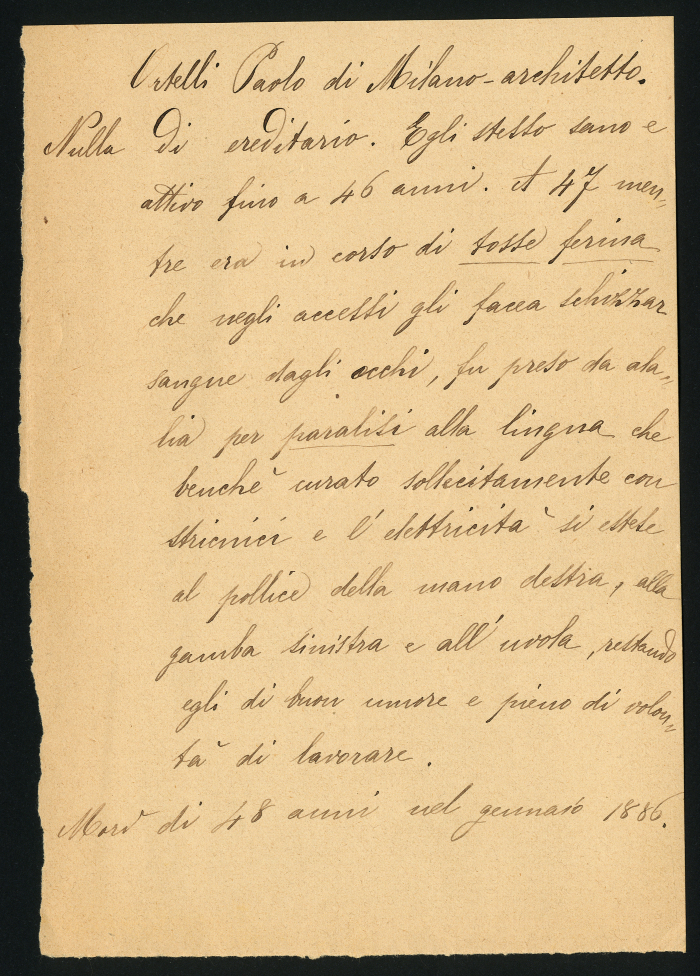 Ortelli Paolo di Milano - architetto.
Nulla di ereditario. Egli stesso sano e
attivo fino a 46 anni. A 47 men„
tre era in corso di tosse ferina
che negli accessi gli facea schizzar
sangue dagli occhi, fu preso da ala„
lia per paralisi alla lingua che
benchè curato sollecitamente con
stricnici e l'elettricità si estese
al pollice della mano destra, alla
gamba sinistra e all'uvola, restando
egli di buon umore e pieno di volon„
tà di lavorare.
Morì di 48 anni nel gennaio 1886.